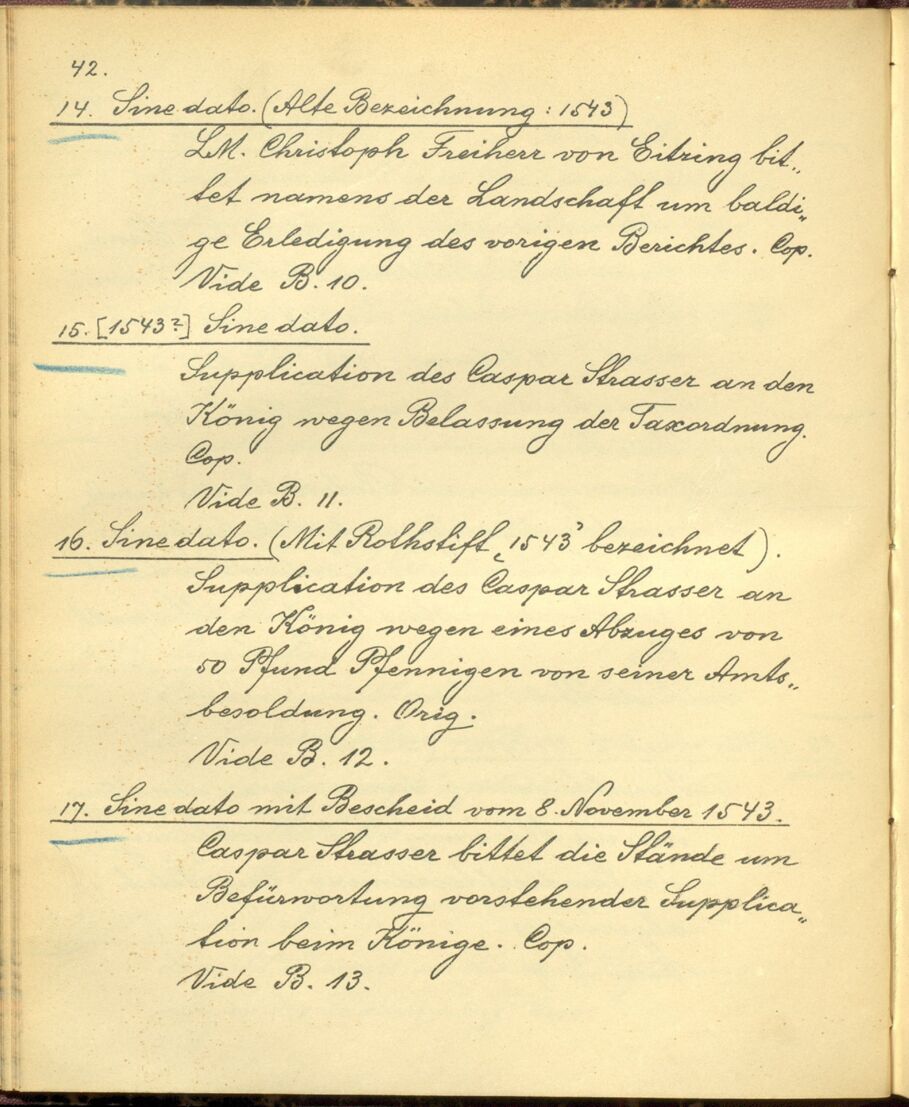 42.
14. Sine dato. (Alte Bezeichnung: 1543)
LM. Christoph Freiherr von Eitzing bit„
tet namens der Landschaft um baldi„
ge Erledigung des vorigen Berichtes. Cop.
Vide B. 10.
15. [1543?] Sine dato.
Supplication des Caspar Strasser an den
König wegen Belassung der Taxordnung.
Cop.
Vide B. 11.
16. Sine dato. (Mit Rothstift ‚1543’ bezeichnet).
Supplication des Caspar Strasser an
den König wegen eines Abzuges von
50 Pfund Pfennigen von seiner Amts„
besoldung. Orig.
Vide B. 12.
17. Sine dato mit Bescheid vom 8. November 1543.
Caspar Strasser bittet die Stände um
Befürwortung vorstehender Supplica„
tion beim Könige. Cop.
Vide B. 13.